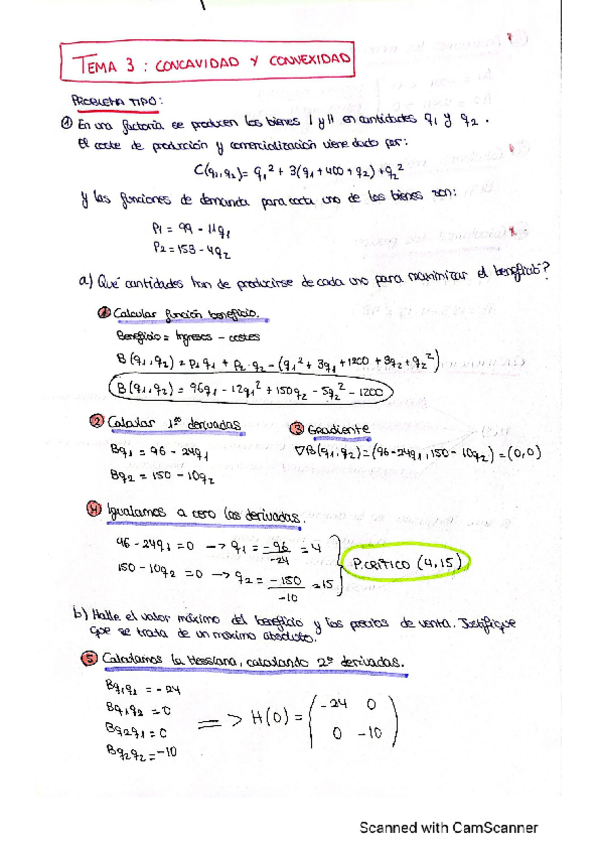 TEMA 3 : CONCAVIDAD Y CONVEXIDAD
PROBLEMA TIPO:
① En una factoría se producen los bienes I y II en cantidades q₁ y q₂.
El coste de producción y comercialización viene dado por:
C(q₁,q₂)= q₁² + 3(q₁+400+q₂)+q₂²
y las funciones de demanda para cada uno de los bienes son:
P₁ = 99 - 11q₁
P₂ = 153 - 4q₂
a) Qué cantidades han de producirse de cada uno para maximizar el beneficio?
① Calcular función beneficio.
Beneficio = Ingresos - costes
B(q₁,q₂) = P₁q₁ + P₂·q₂ - (q₁² + 3q₁ + 1200 + 3q₂ + q₂²)
B(q₁,q₂) = 96q₁ - 12q₁² + 150q₂ - 5q₂² - 1200
② Calcular 1ªˢ derivadas ③ Gradiente
Bq₁ = 96 - 24q₁ ∇B(q₁,q₂)=(96-24q₁,150-10q₂)=(0,0)
Bq₂ = 150 - 10q₂
④ Igualamos a cero las derivadas.
96-24q₁=0 → q₁ = -96/-24 = 4
150-10q₂=0 → q₂ = -150/-10 = 15 P.CRÍTICO (4,15)
b) Halle el valor máximo del beneficio y los precios de venta. Justifique
que se trata de un máximo absoluto.
⑤ Calculamos la Hessiana, calculando 2ªˢ derivadas.
Bq₁q₁ = -24
Bq₁q₂ = 0
Bq₂q₁ = 0
Bq₂q₂ = -10
=> H(0) = ( -24 0
0 -10 )
Scanned with CamScanner